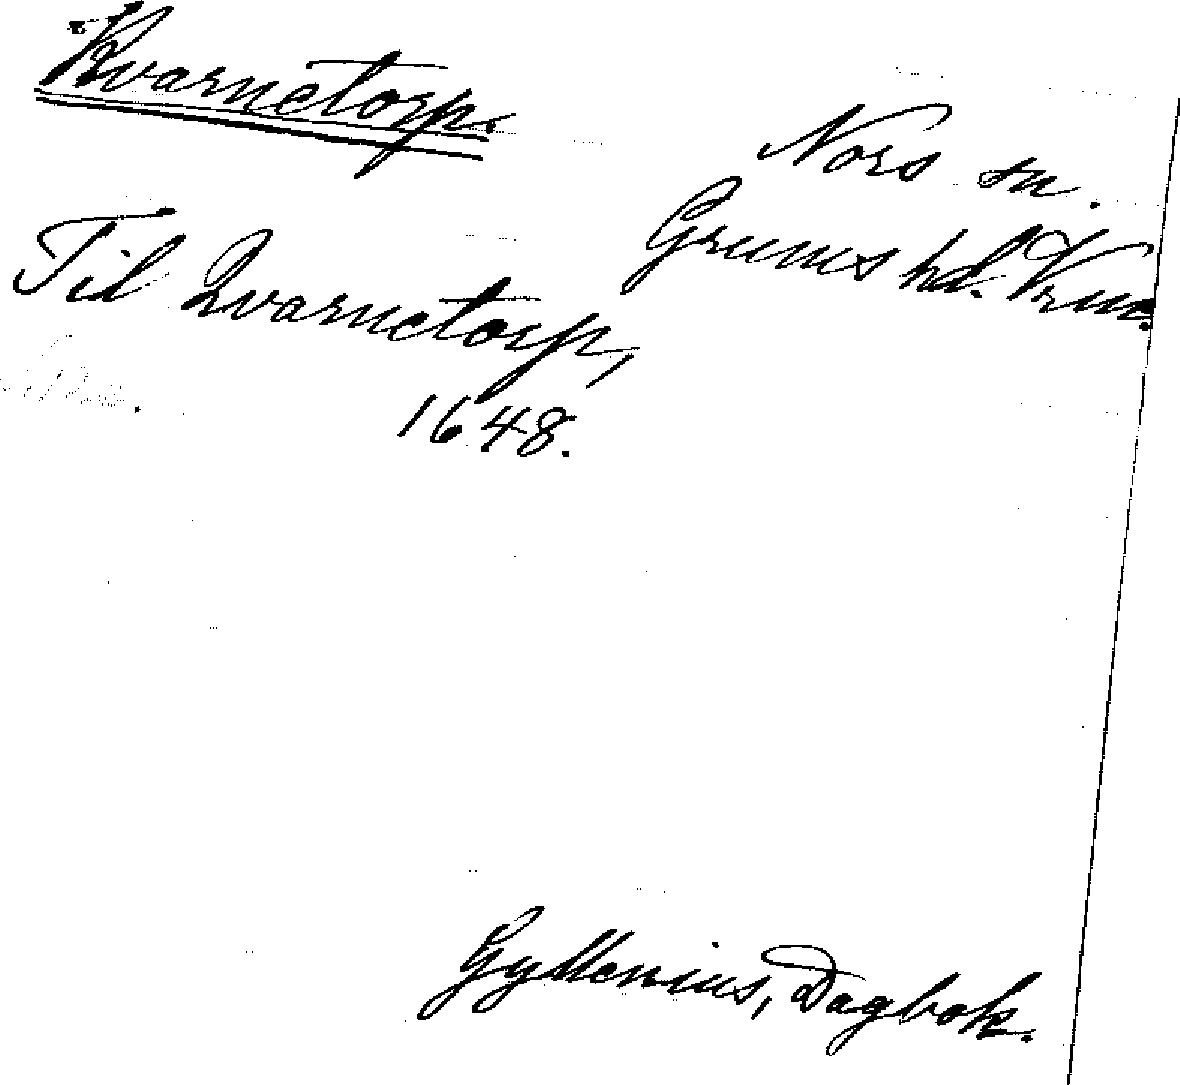 Kvarnetorp.
Nors sn.
Grums hd. Vrm.
Til Qvarnetorp,
1648.
Gyllenius, Dagbok.